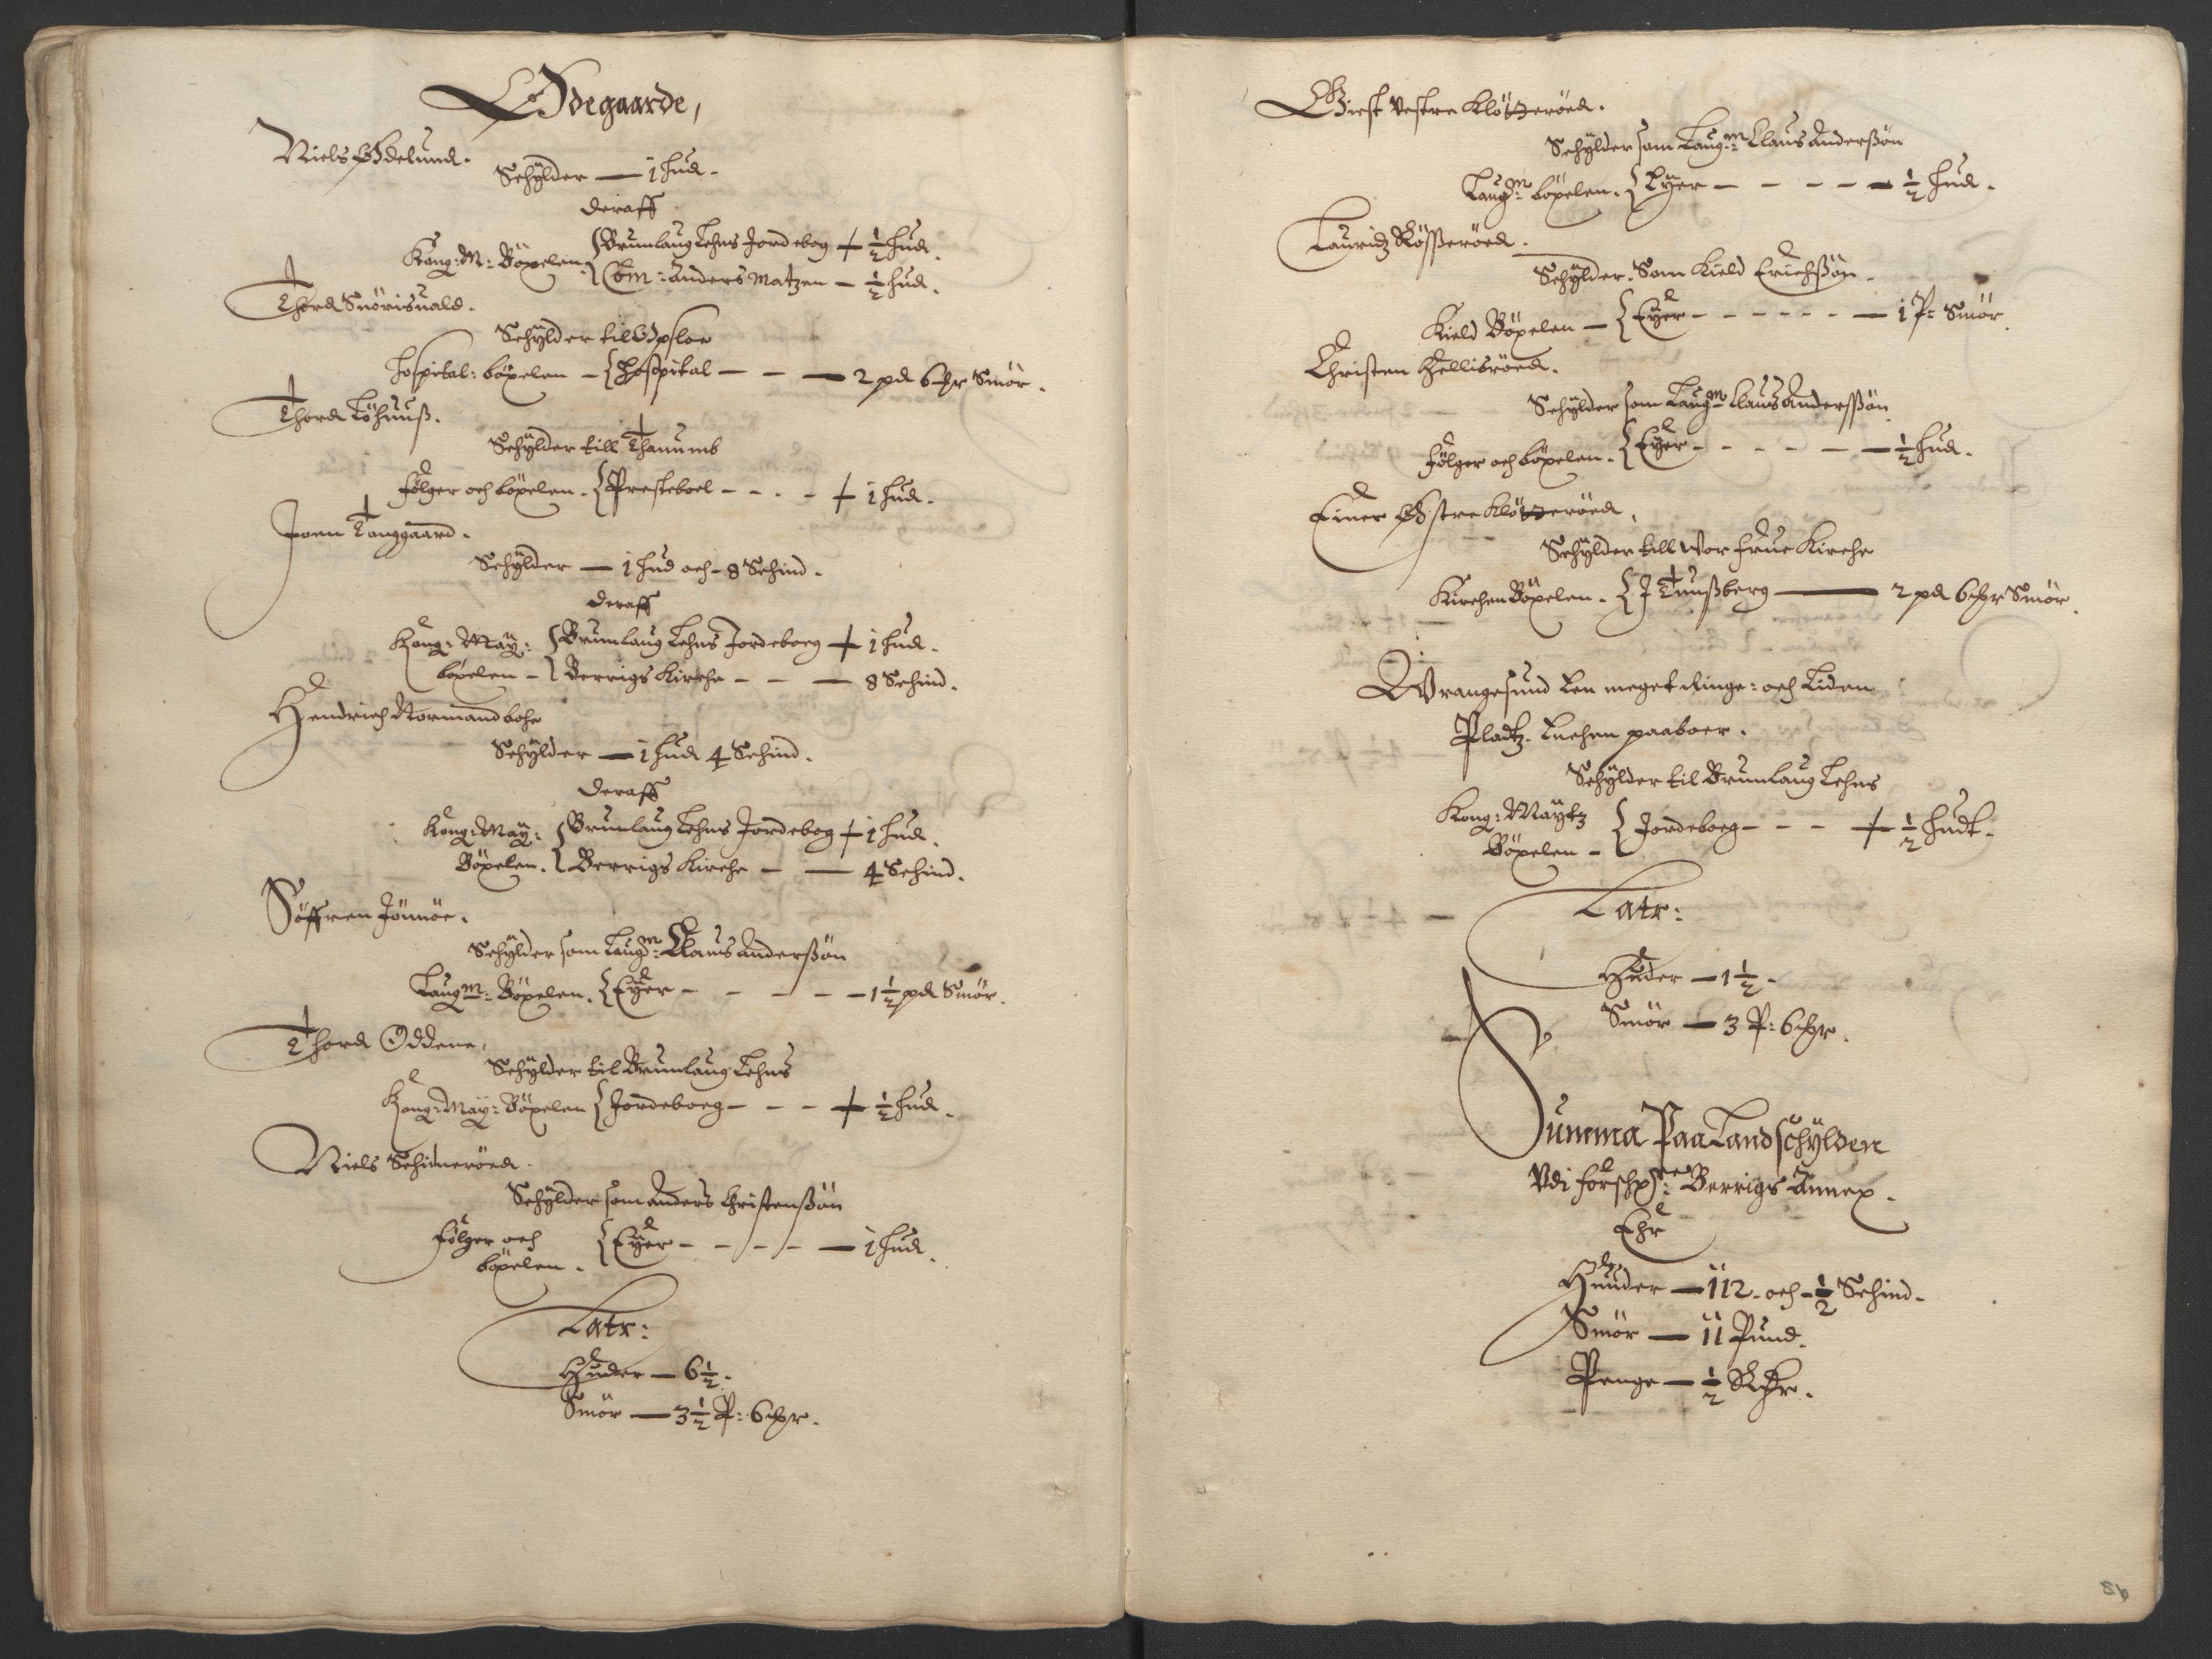 Ødegaarde,
Niels Ødelund.
Schÿlder — 1 hud.
deraff
Kong: M: Böxelen. { Brunlaug Lehns Jordebog + ½ hud.
Com: Anders Matzen — ½ hud.
Thord Snörisuald.
Schÿlder til Opsloe
Hospital: böxelen — { Hospital — — — 2 pd 6 mkr Smör.
Thord Löhuuß.
Schÿlder till Thanumb
følger och böxelen. { Presteboel - - - - + 1 hud.
Joen Tanggaard.
Schÿlder — 1 hud och - 8 Schind.
deraff
Kong: Maÿ: { Brunlaug Lehns Jordeboeg + 1 hud.
böxelen — Berrigs Kirche — — — 8 Schind.
Hendrich Normandbohe
Schÿlder — 1 hud 4 Schind.
deraff
Kong: Maÿ: { Brunlaug Lehns Jordebog + 1 hud.
Böxelen. Berrigs Kirche — — 4 Schind.
Söffren Jönnöe.
Schÿlder som Laugm: Claus Anderßön
Laugm: Böxelen. { Eÿer — — — — — 1½ pd Smör.
Thord Oddene,
Schÿlder til Brunlaug Lehns
Kong: Maÿ: Böxelen { Jordeboeg — — — + ½ hud.
Niels Schinneröed.
Schÿlder som Anders Christenßön
følger och { Eÿer — — — — — 1 hud.
böxelen.
Latr:
Huder — 6½.
Smör — 3½ P: 6 mkr.
Giest Vestre Klötzeröed.
Schÿlder som Laugm: Claus Anderßön
Laugm: böxelen. { Eÿer — — — — — ½ hud.
Lauridz Rößeröed.
Schÿlder. Som Kield Erichßön.
Kield Böxelen — { Eÿer — — — — — — 1 P: Smör.
Christen Hellisröed.
Schÿlder som Laugm Claus Anderßön
følger och böxelen. { Eÿer — — — — — ½ hud.
Einer Østre Klötzeröed,
Schÿlder till Vor frue Kirche
Kirchen Böxelen. { J Tunßberg — 2 pd 6 mkr Smör.
Wrangesund Een meget Ringe: och Liden
Pladtz. Enchen paaboer.
Schÿlder til Brunlaug Lehns
Kong: Maÿtz { Jordeboeg — — — + ½ hudt.
Böxelen —
Latr:
Huder — 1½.
Smör — 3 P: 6 mkr.
Summa Paa Landschÿlden
Vdi forschr: Berrigs Annex.
Ehr
Huuder — 112 - och - ½ Schind.
Smör — 11 Pund.
Penge — ½ Rdr.